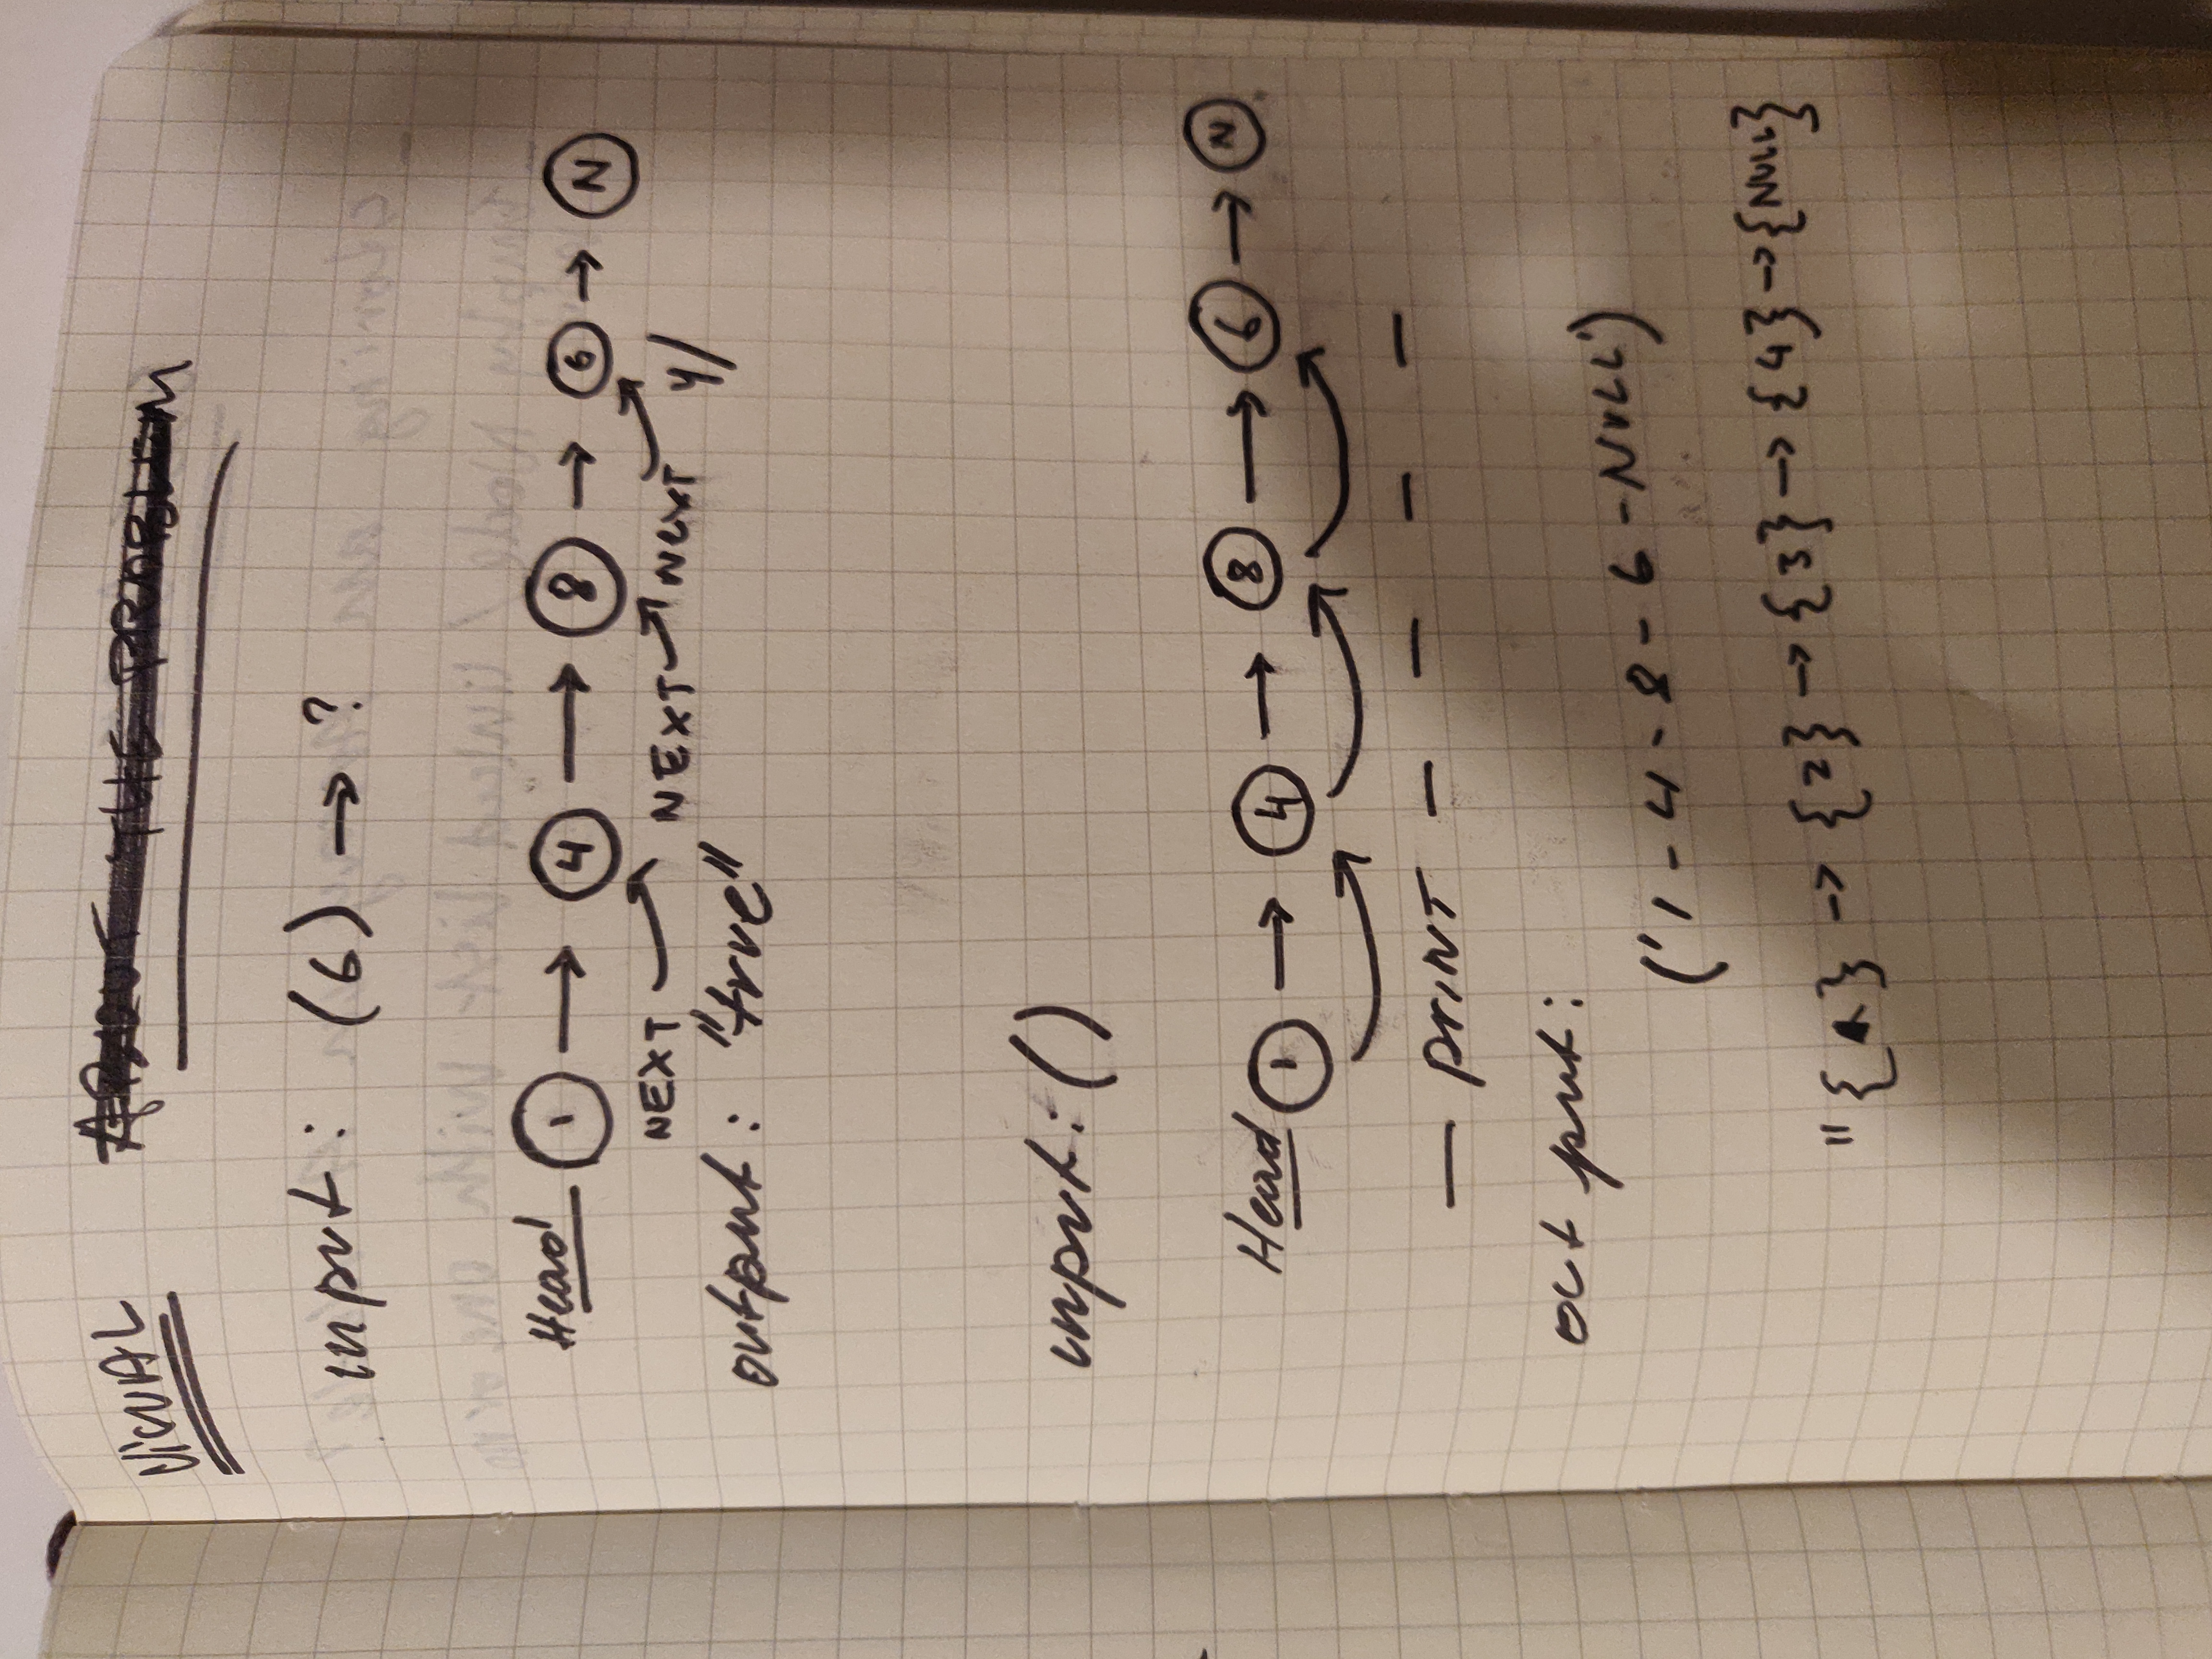 VISUAL ABOUT THE PROBLEM
input: (6) → ?
Head 1 → 4 → 8 → 6 → N
NEXT NEXT NEXT Y/
output: "true"
input: ()
Head 1 → 4 → 8 → 6 → N
— PRINT — — — —
output:
('1-4-8-6-NULL')
"{ } → {2} → {3} → {4} → {NULL}